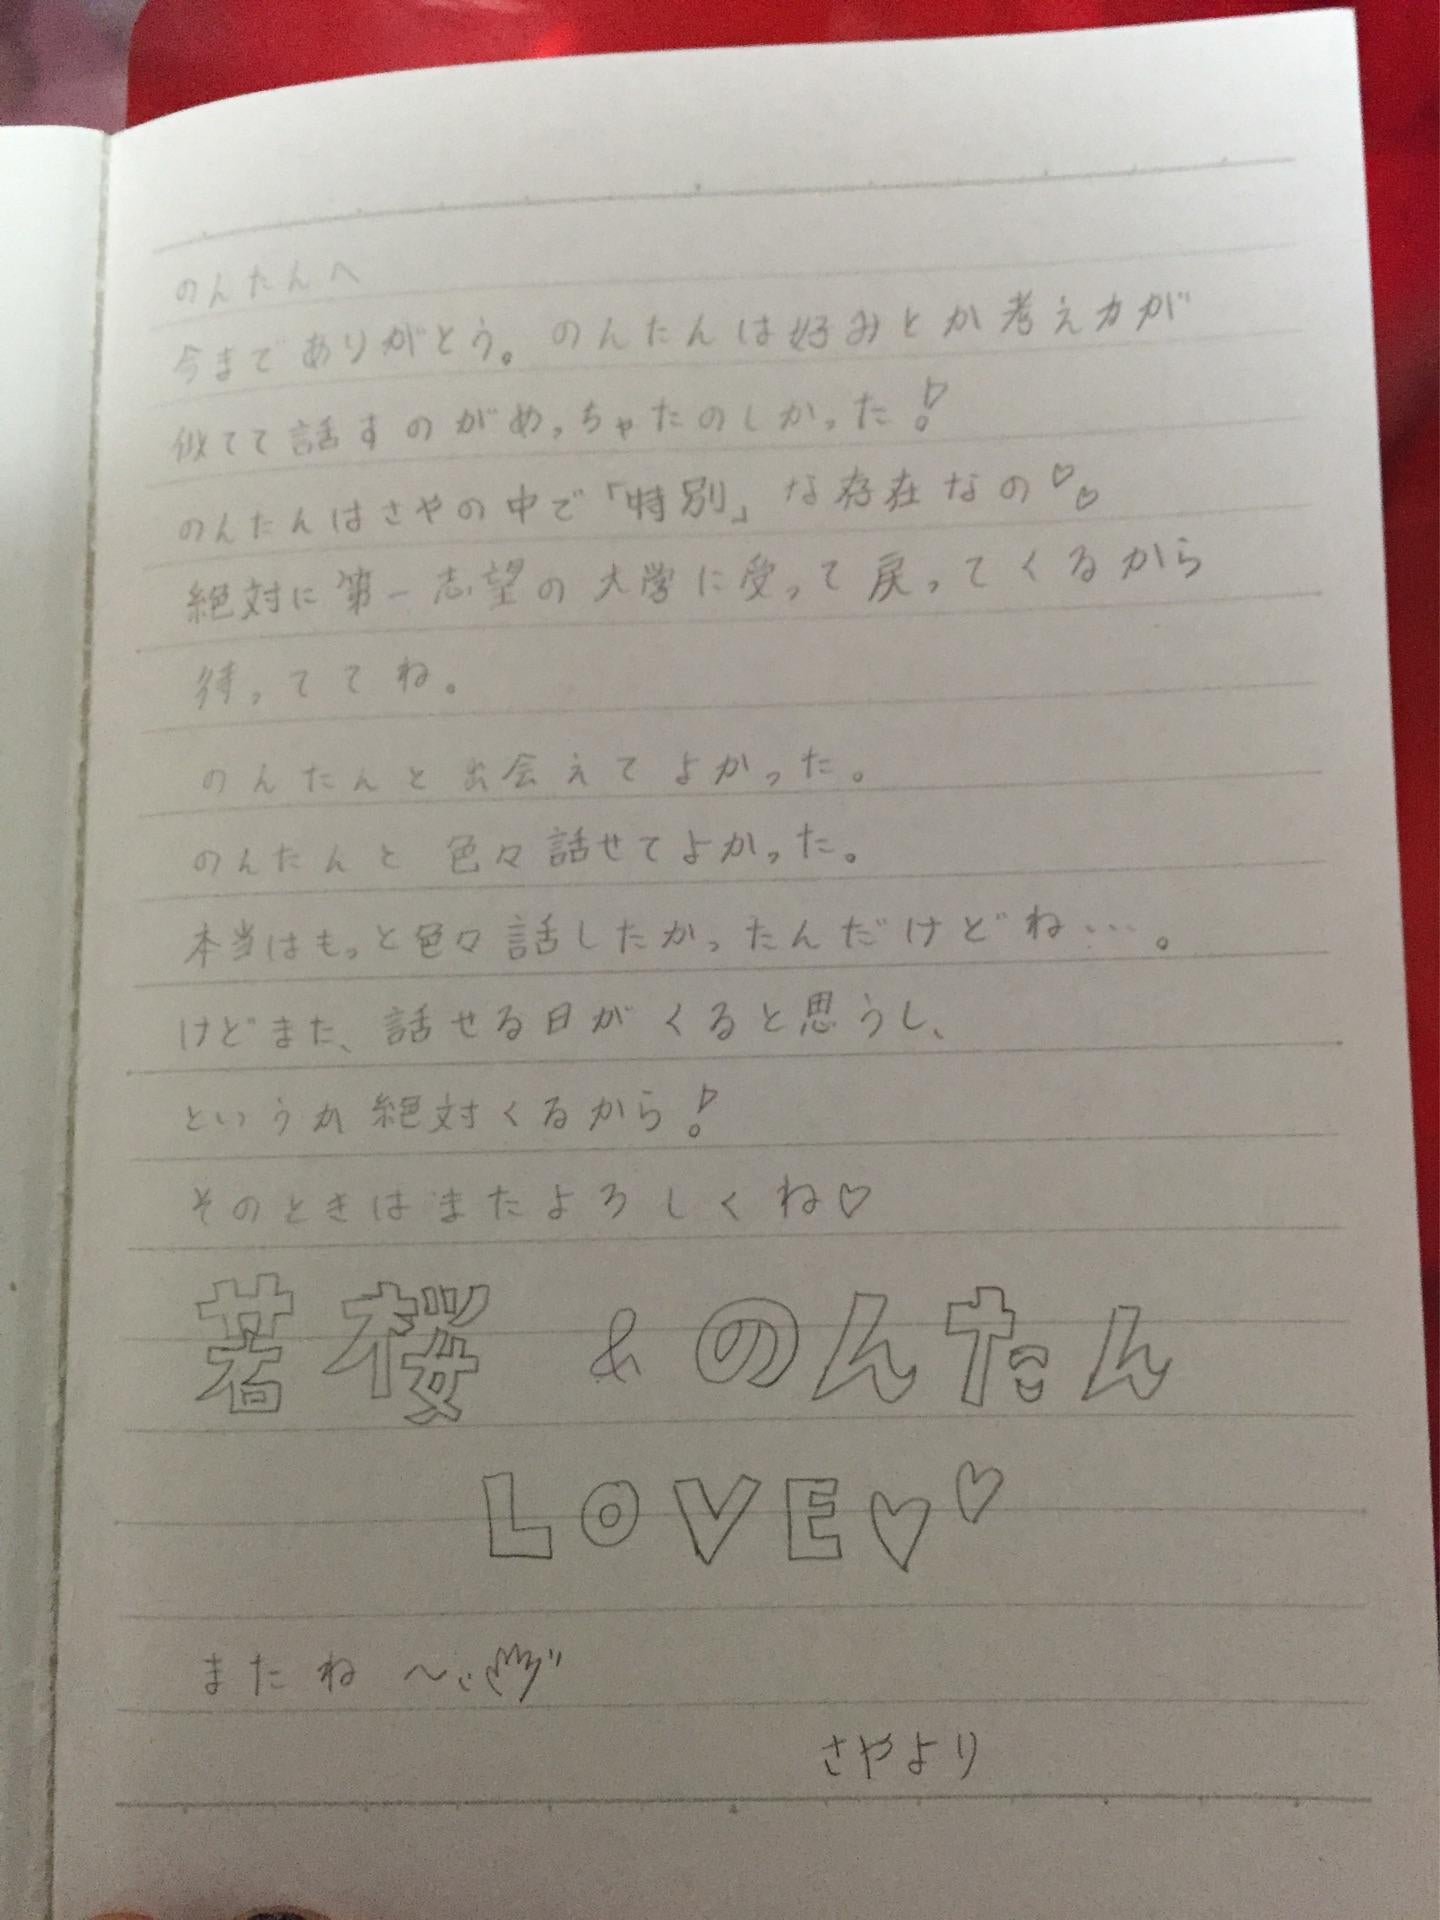 のんたんへ
今までありがとう。のんたんは好みとか考え方が
似てて話すのがめっちゃたのしかった!
のんたんはさやの中で「特別」な存在なの♡♡
絶対に第一志望の大学に受って戻ってくるから
待っててね。
のんたんと出会えてよかった。
のんたんと色々話せてよかった。
本当はもっと色々話したかったんだけどね…。
けどまた、話せる日がくると思うし、
というか絶対くるから!
そのときはまたよろしくね♡
著桜 & のんたん
LOVE♡♡
またね〜
さやより